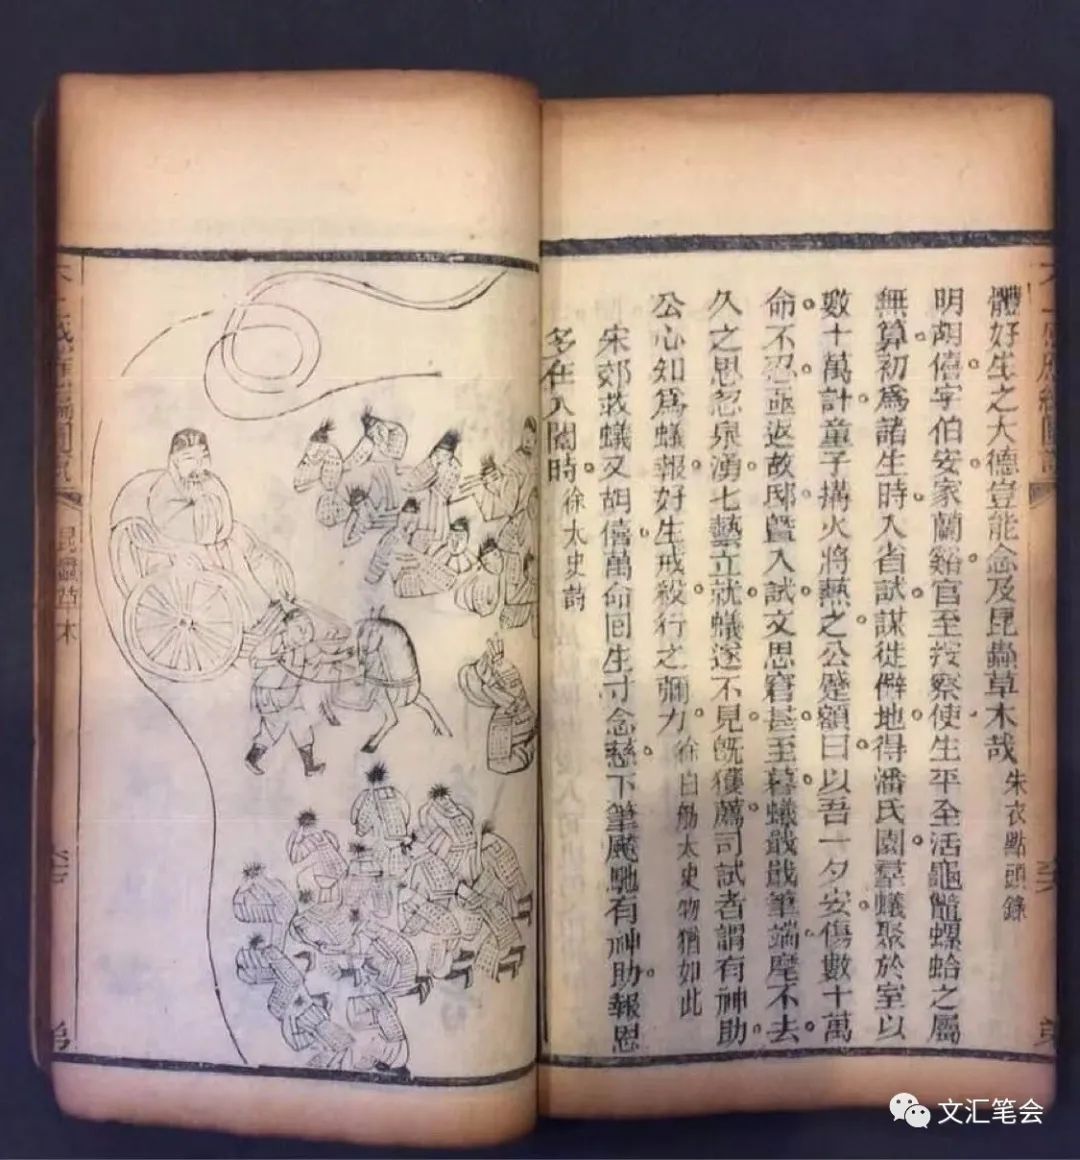 體好生之大德豈能念及昆蟲草木哉 朱衣點頭錄
明胡僖字伯安家蘭谿官至按察使生平全活龜鼈螺蛤之屬
無算初爲諸生時入省試謀徙僻地得潘氏園羣蟻聚於室以
數十萬計童子搆火將爇之公蹙額曰以吾一夕安傷數十萬
命不忍亟返故邸曁入試文思窘甚至暮蟻戢戢筆端麾不去
久之思忽泉湧七藝立就蟻遂不見旣獲薦司試者謂有神助
公心知爲蟻報好生戒殺行之彌力 徐白舫太史 物猶如此
宋郊救蟻又胡僖萬命囘生寸念慈下筆颷馳有神助報恩
多在入闈時 徐太史詩
昆蟲草木
文汇笔会